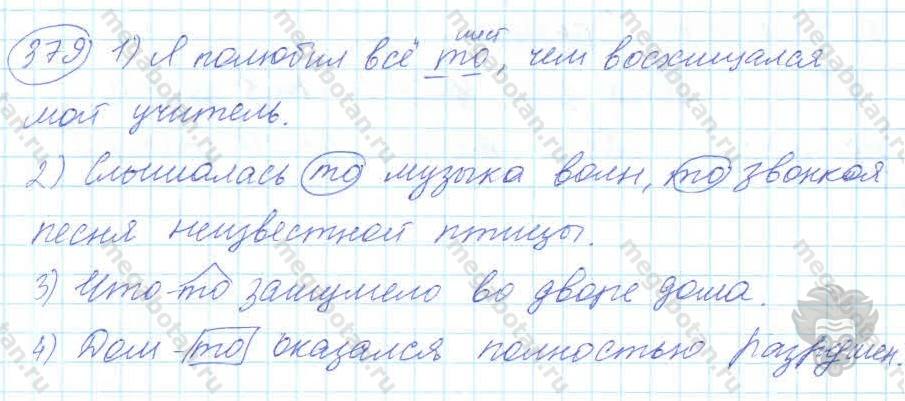 379 1) Я полюбил всё то, чем восхищался
мест
мой учитель.
2) Слышалась то музыка волн, то звонкая
песня неизвестной птицы.
3) Что-то зашумело во дворе дома.
4) Дом-то оказался полностью разрушен.
megabotan.ru